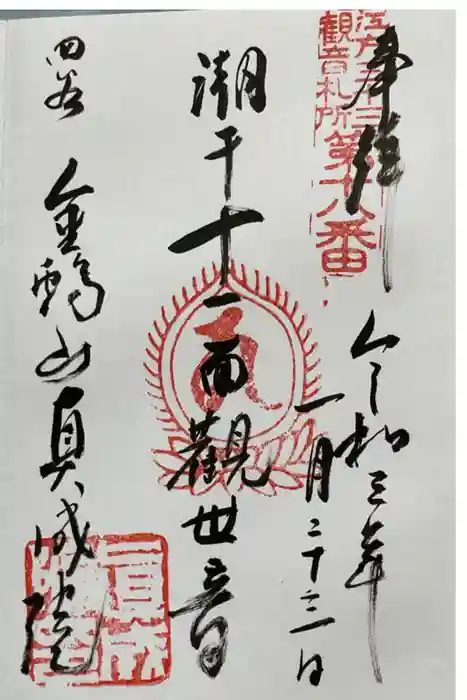 江戸三十三
観音札所第十八番
奉拝
令和三年
一月二十三日
潮干十一面観世音
四谷 金鶏山真成院